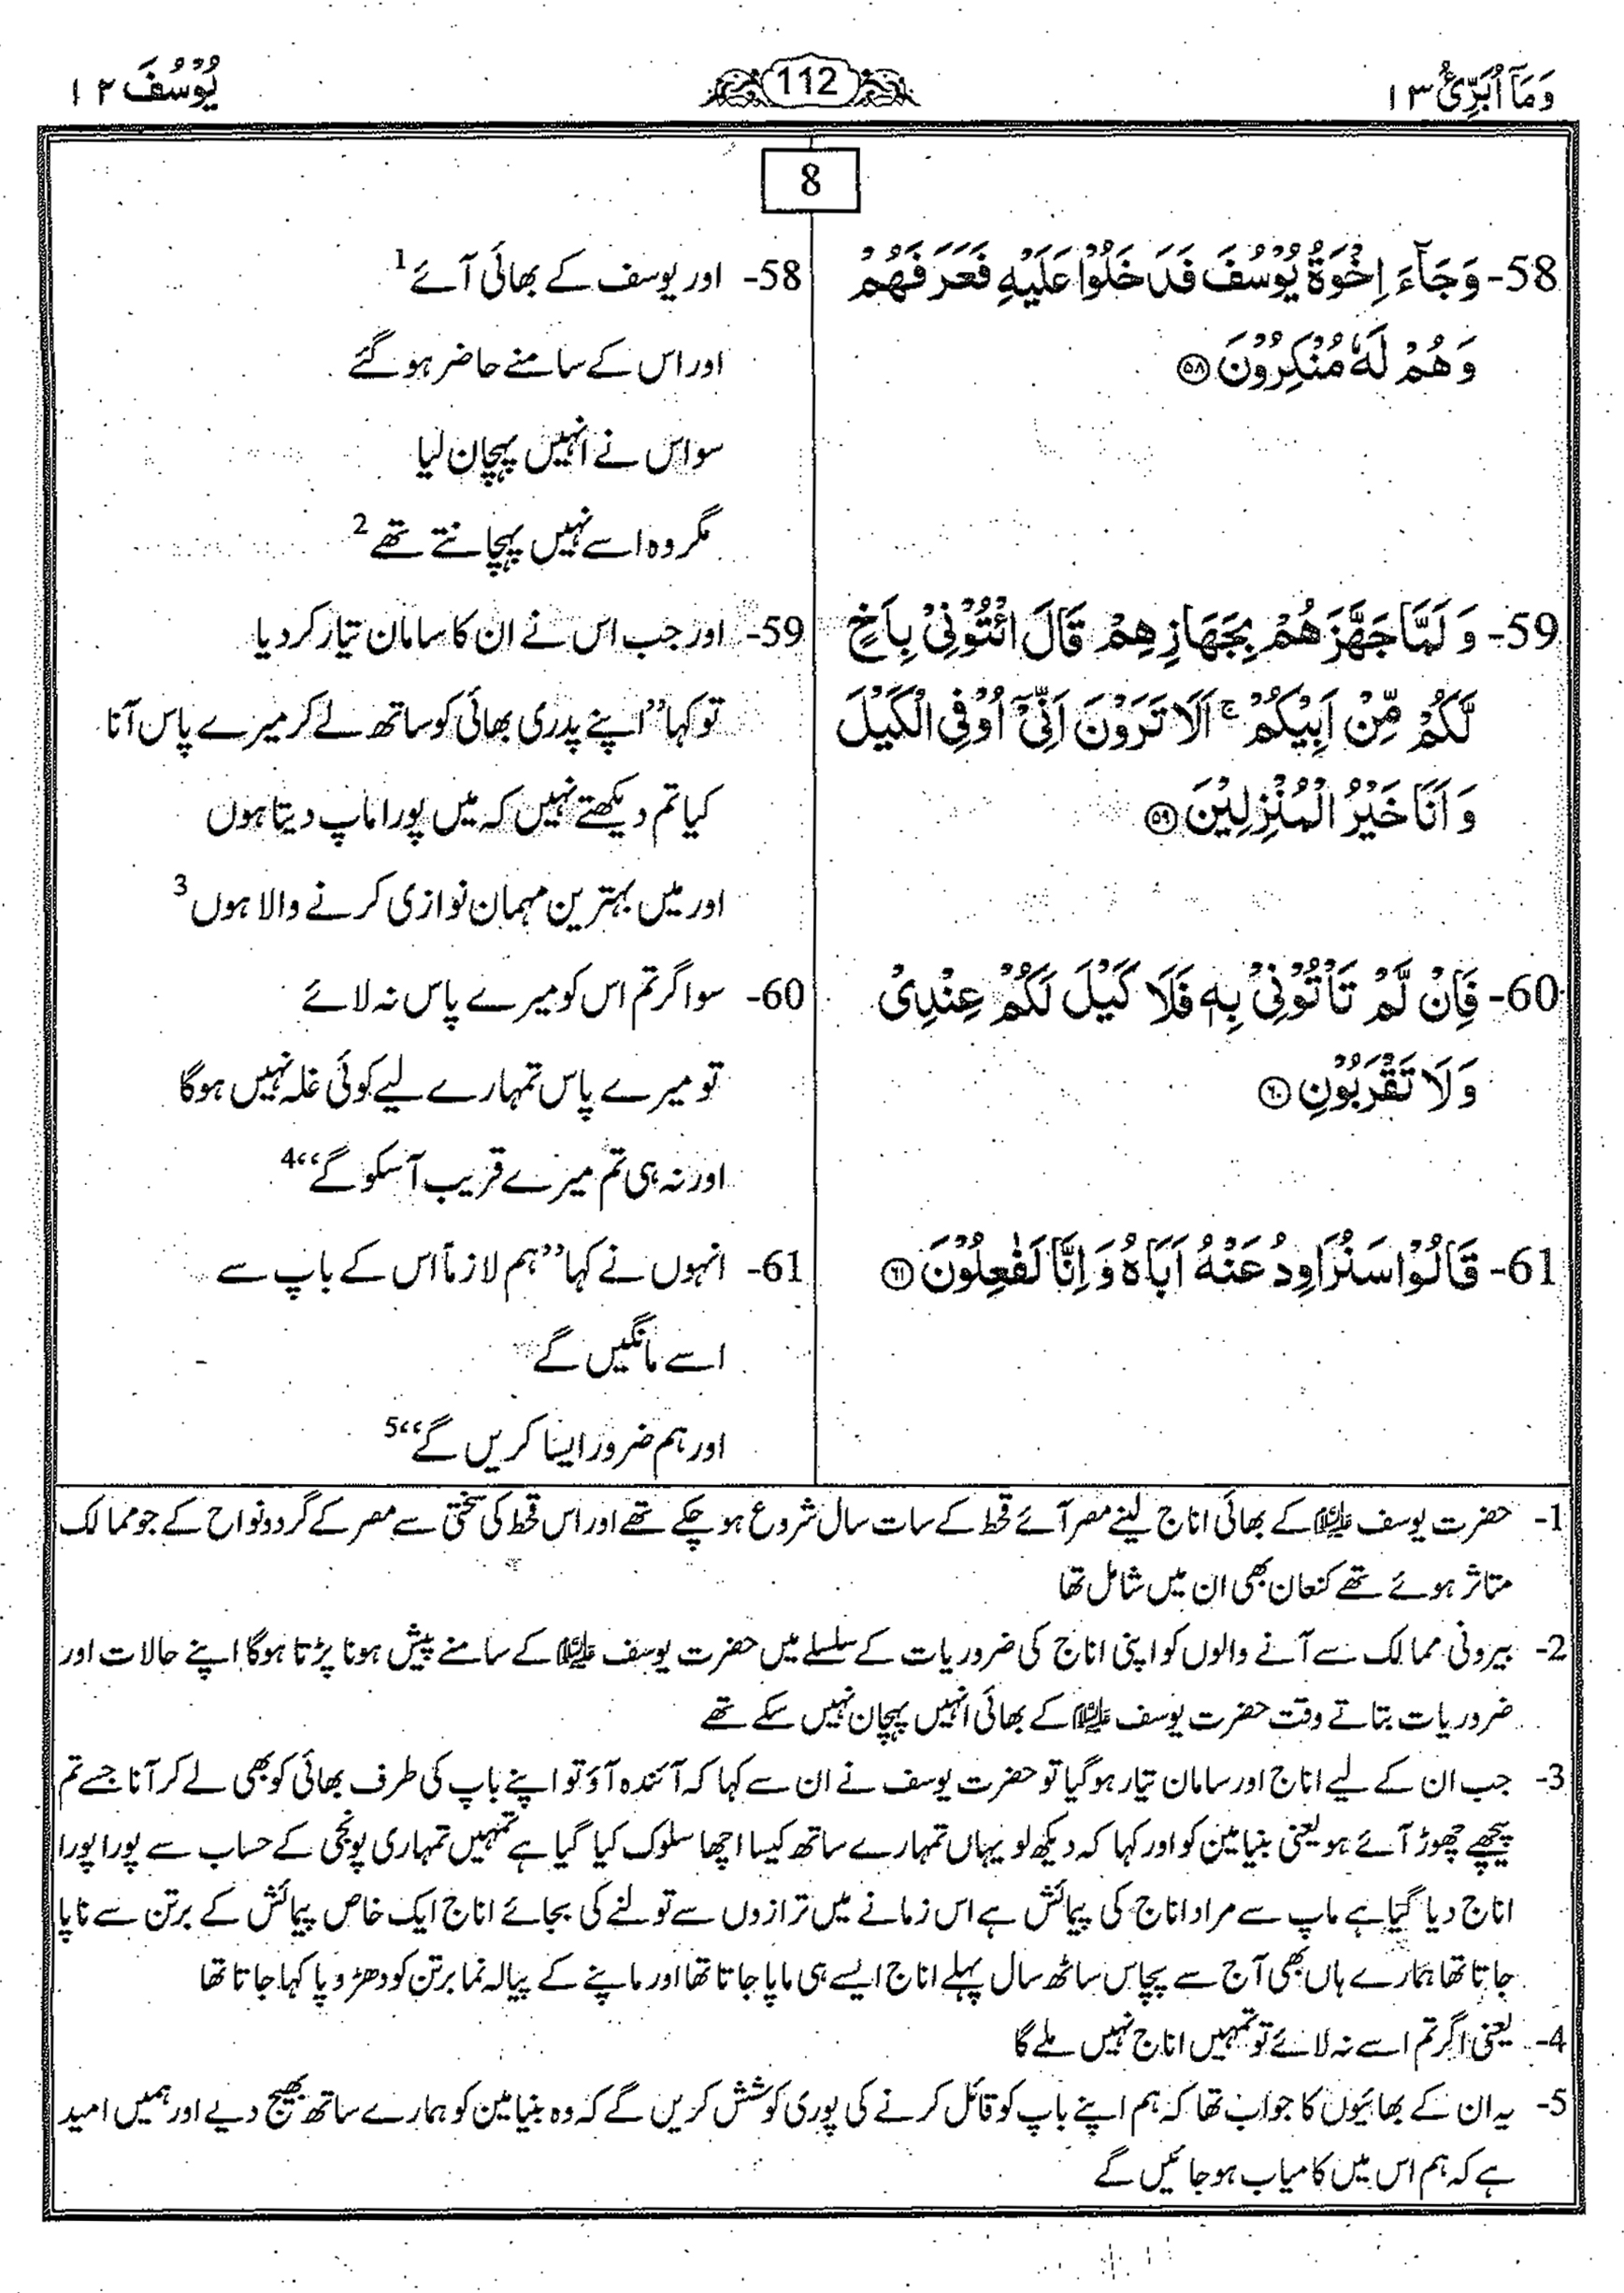 وَمَآ اُبَرِّئُ ۱۳
112
يُوْسُفَ ۱۲
8
58- وَجَآءَ اِخْوَةُ يُوْسُفَ فَدَخَلُوْا عَلَيْهِ فَعَرَفَهُمْ
وَهُمْ لَهٗ مُنْكِرُوْنَ ۵۸
59- وَلَمَّا جَهَّزَهُمْ بِجَهَازِهِمْ قَالَ ائْتُوْنِيْ بِاَخٍ
لَّكُمْ مِّنْ اَبِيْكُمْ ۚ اَلَا تَرَوْنَ اَنِّيْٓ اُوْفِي الْكَيْلَ
وَاَنَا خَيْرُ الْمُنْزِلِيْنَ ۵۹
60- فَاِنْ لَّمْ تَاْتُوْنِيْ بِهٖ فَلَا كَيْلَ لَكُمْ عِنْدِيْ
وَلَا تَقْرَبُوْنِ ۶۰
61- قَالُوْا سَنُرَاوِدُ عَنْهُ اَبَاهُ وَاِنَّا لَفٰعِلُوْنَ ۶۱
58- اور یوسف کے بھائی آئے 1
اور اس کے سامنے حاضر ہو گئے
سو اس نے انہیں پہچان لیا
مگر وہ اسے نہیں پہچانتے تھے 2
59- اور جب اس نے ان کا سامان تیار کر دیا
تو کہا ’’اپنے پدری بھائی کو ساتھ لے کر میرے پاس آنا
کیا تم دیکھتے نہیں کہ میں پورا ماپ دیتا ہوں
اور میں بہترین مہمان نوازی کرنے والا ہوں 3
60- سو اگر تم اس کو میرے پاس نہ لائے
تو میرے پاس تمہارے لیے کوئی غلہ نہیں ہوگا
اور نہ ہی تم میرے قریب آسکو گے‘‘ 4
61- انہوں نے کہا ’’ہم لازماً اس کے باپ سے
اسے مانگیں گے
اور ہم ضرور ایسا کریں گے‘‘ 5
1- حضرت یوسف علیہ السلام کے بھائی اناج لینے مصر آئے قحط کے سات سال شروع ہو چکے تھے اور اس قحط کی سختی سے مصر کے گردونواح کے جو ممالک
متاثر ہوئے تھے کنعان بھی ان میں شامل تھا
2- بیرونی ممالک سے آنے والوں کو اپنی اناج کی ضروریات کے سلسلے میں حضرت یوسف علیہ السلام کے سامنے پیش ہونا پڑتا ہوگا اپنے حالات اور
ضروریات بتاتے وقت حضرت یوسف علیہ السلام کے بھائی انہیں پہچان نہیں سکے تھے
3- جب ان کے لیے اناج اور سامان تیار ہو گیا تو حضرت یوسف نے ان سے کہا کہ آئندہ آؤ تو اپنے باپ کی طرف بھائی کو بھی لے کر آنا جسے تم
پیچھے چھوڑ آئے ہو یعنی بنیامین کو اور کہا کہ دیکھ لو یہاں تمہارے ساتھ کیسا اچھا سلوک کیا گیا ہے تمہیں تمہاری پونجی کے حساب سے پورا پورا
اناج دیا گیا ہے ماپ سے مراد اناج کی پیمائش ہے اس زمانے میں ترازوں سے تولنے کی بجائے اناج ایک خاص پیمائش کے برتن سے ناپا
جاتا تھا ہمارے ہاں بھی آج سے پچاس ساٹھ سال پہلے اناج ایسے ہی ماپا جاتا تھا اور ماپنے کے پیالہ نما برتن کو دھڑوپا کہا جاتا تھا
4- یعنی اگر تم اسے نہ لائے تو تمہیں اناج نہیں ملے گا
5- یہ ان کے بھائیوں کا جواب تھا کہ ہم اپنے باپ کو قائل کرنے کی پوری کوشش کریں گے کہ وہ بنیامین کو ہمارے ساتھ بھیج دے اور ہمیں امید
ہے کہ ہم اس میں کامیاب ہو جائیں گے